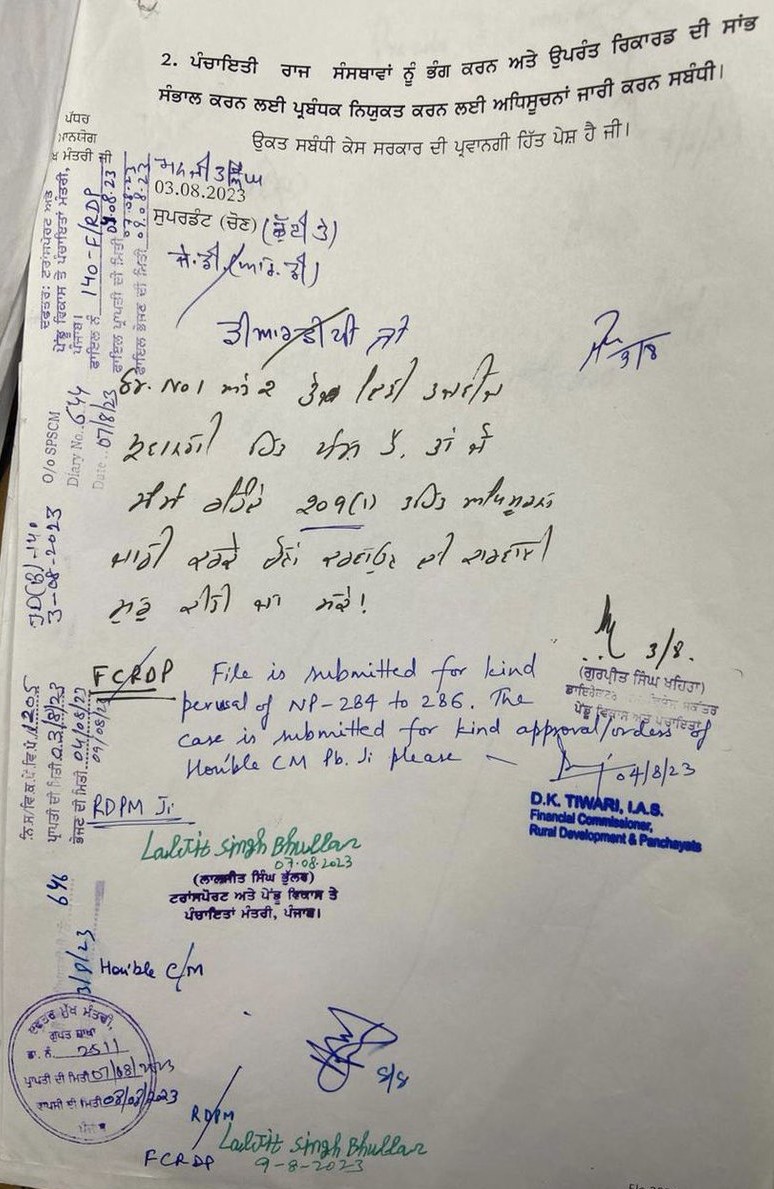 2. ਪੰਚਾਇਤੀ ਰਾਜ ਸੰਸਥਾਵਾਂ ਨੂੰ ਭੰਗ ਕਰਨ ਅਤੇ ਉਪਰੰਤ ਰਿਕਾਰਡ ਦੀ ਸਾਂਭ
ਸੰਭਾਲ ਕਰਨ ਲਈ ਪ੍ਰਬੰਧਕ ਨਿਯੁਕਤ ਕਰਨ ਲਈ ਅਧਿਸੂਚਨਾਂ ਜਾਰੀ ਕਰਨ ਸਬੰਧੀ।
ਉਕਤ ਸਬੰਧੀ ਕੇਸ ਸਰਕਾਰ ਦੀ ਪ੍ਰਵਾਨਗੀ ਹਿੱਤ ਪੇਸ਼ ਹੈ ਜੀ।
ਪੱਧਰ
ਮਾਨਯੋਗ
ਮੰਤਰੀ ਜੀ
03.08.2023
ਸੁਪਰਡੰਟ (ਚੋਣ) (ਛੁੱਟੀ ਤੇ)
ਜੇ.ਡੀ. (ਆਰ.ਡੀ)
ਡੀਆਰਡੀਪੀ ਜੀ
3/8
ਦਫਤਰ: ਟਰਾਂਸਪੋਰਟ ਅਤੇ
ਪੇਂਡੂ ਵਿਕਾਸ ਤੇ ਪੰਚਾਇਤਾਂ ਮੰਤਰੀ,
ਪੰਜਾਬ।
ਡਾਇਲ ਨੰ 140-F/RDP
ਡਾਇਲ ਪ੍ਰਾਪਤੀ ਦੀ ਮਿਤੀ 07.08.23
ਡਾਇਲ ਭੇਜਣ ਦੀ ਮਿਤੀ 09.08.23
Sr. No 1 ਅਤੇ 2 ਤੇ ਦਿੱਤੀ ਤਜਵੀਜ਼
ਪ੍ਰਵਾਨਗੀ ਹਿੱਤ ਪੇਸ਼ ਹੈ, ਤਾਂ ਜੋ
209(1) ਤਹਿਤ ਅਧਿਸੂਚਨਾ
ਜਾਰੀ ਕਰਕੇ ਚੋਣਾਂ ਕਰਵਾਉਣ ਦੀ ਕਾਰਵਾਈ
ਸ਼ੁਰੂ ਕੀਤੀ ਜਾ ਸਕੇ!
O/O SPSCM
Diary No. 644
Date 07/8/23
3-08-2023
3/8.
(ਗੁਰਪ੍ਰੀਤ ਸਿੰਘ ਖਹਿਰਾ)
ਪੇਂਡੂ ਵਿਕਾਸ ਅਤੇ ਪੰਚਾਇਤਾਂ
FCRDP
File is submitted for kind
perusal of NP-284 to 286. The
case is submitted for kind approval/orders of
Hon'ble CM Pb. Ji please
04/8/23
D.K. TIWARI, I.A.S.
Financial Commissioner,
Rural Development & Panchayats
1205
ਪ੍ਰਾਪਤੀ ਦੀ ਮਿਤੀ 03/8/23
ਭੇਜਣ ਦੀ ਮਿਤੀ 04/08/23
09/08/23
RDPM Ji
Laljit Singh Bhullar
07.08.2023
(ਲਾਲਜੀਤ ਸਿੰਘ ਭੁੱਲਰ)
ਟਰਾਂਸਪੋਰਟ ਅਤੇ ਪੇਂਡੂ ਵਿਕਾਸ ਤੇ
ਪੰਚਾਇਤਾਂ ਮੰਤਰੀ, ਪੰਜਾਬ।
646
Hon'ble C/M
ਦਫਤਰ ਮੁੱਖ ਮੰਤਰੀ,
ਗੁਪਤ ਸ਼ਾਖਾ
ਡਾ. ਨੰ. 2511
ਪ੍ਰਾਪਤੀ ਦੀ ਮਿਤੀ 07/08/2023
ਵਾਪਸੀ ਦੀ ਮਿਤੀ 08/08/2023
ਪੰਜਾਬ
8/8
RDPM
Laljit Singh Bhullar
9-8-2023
FCRDP